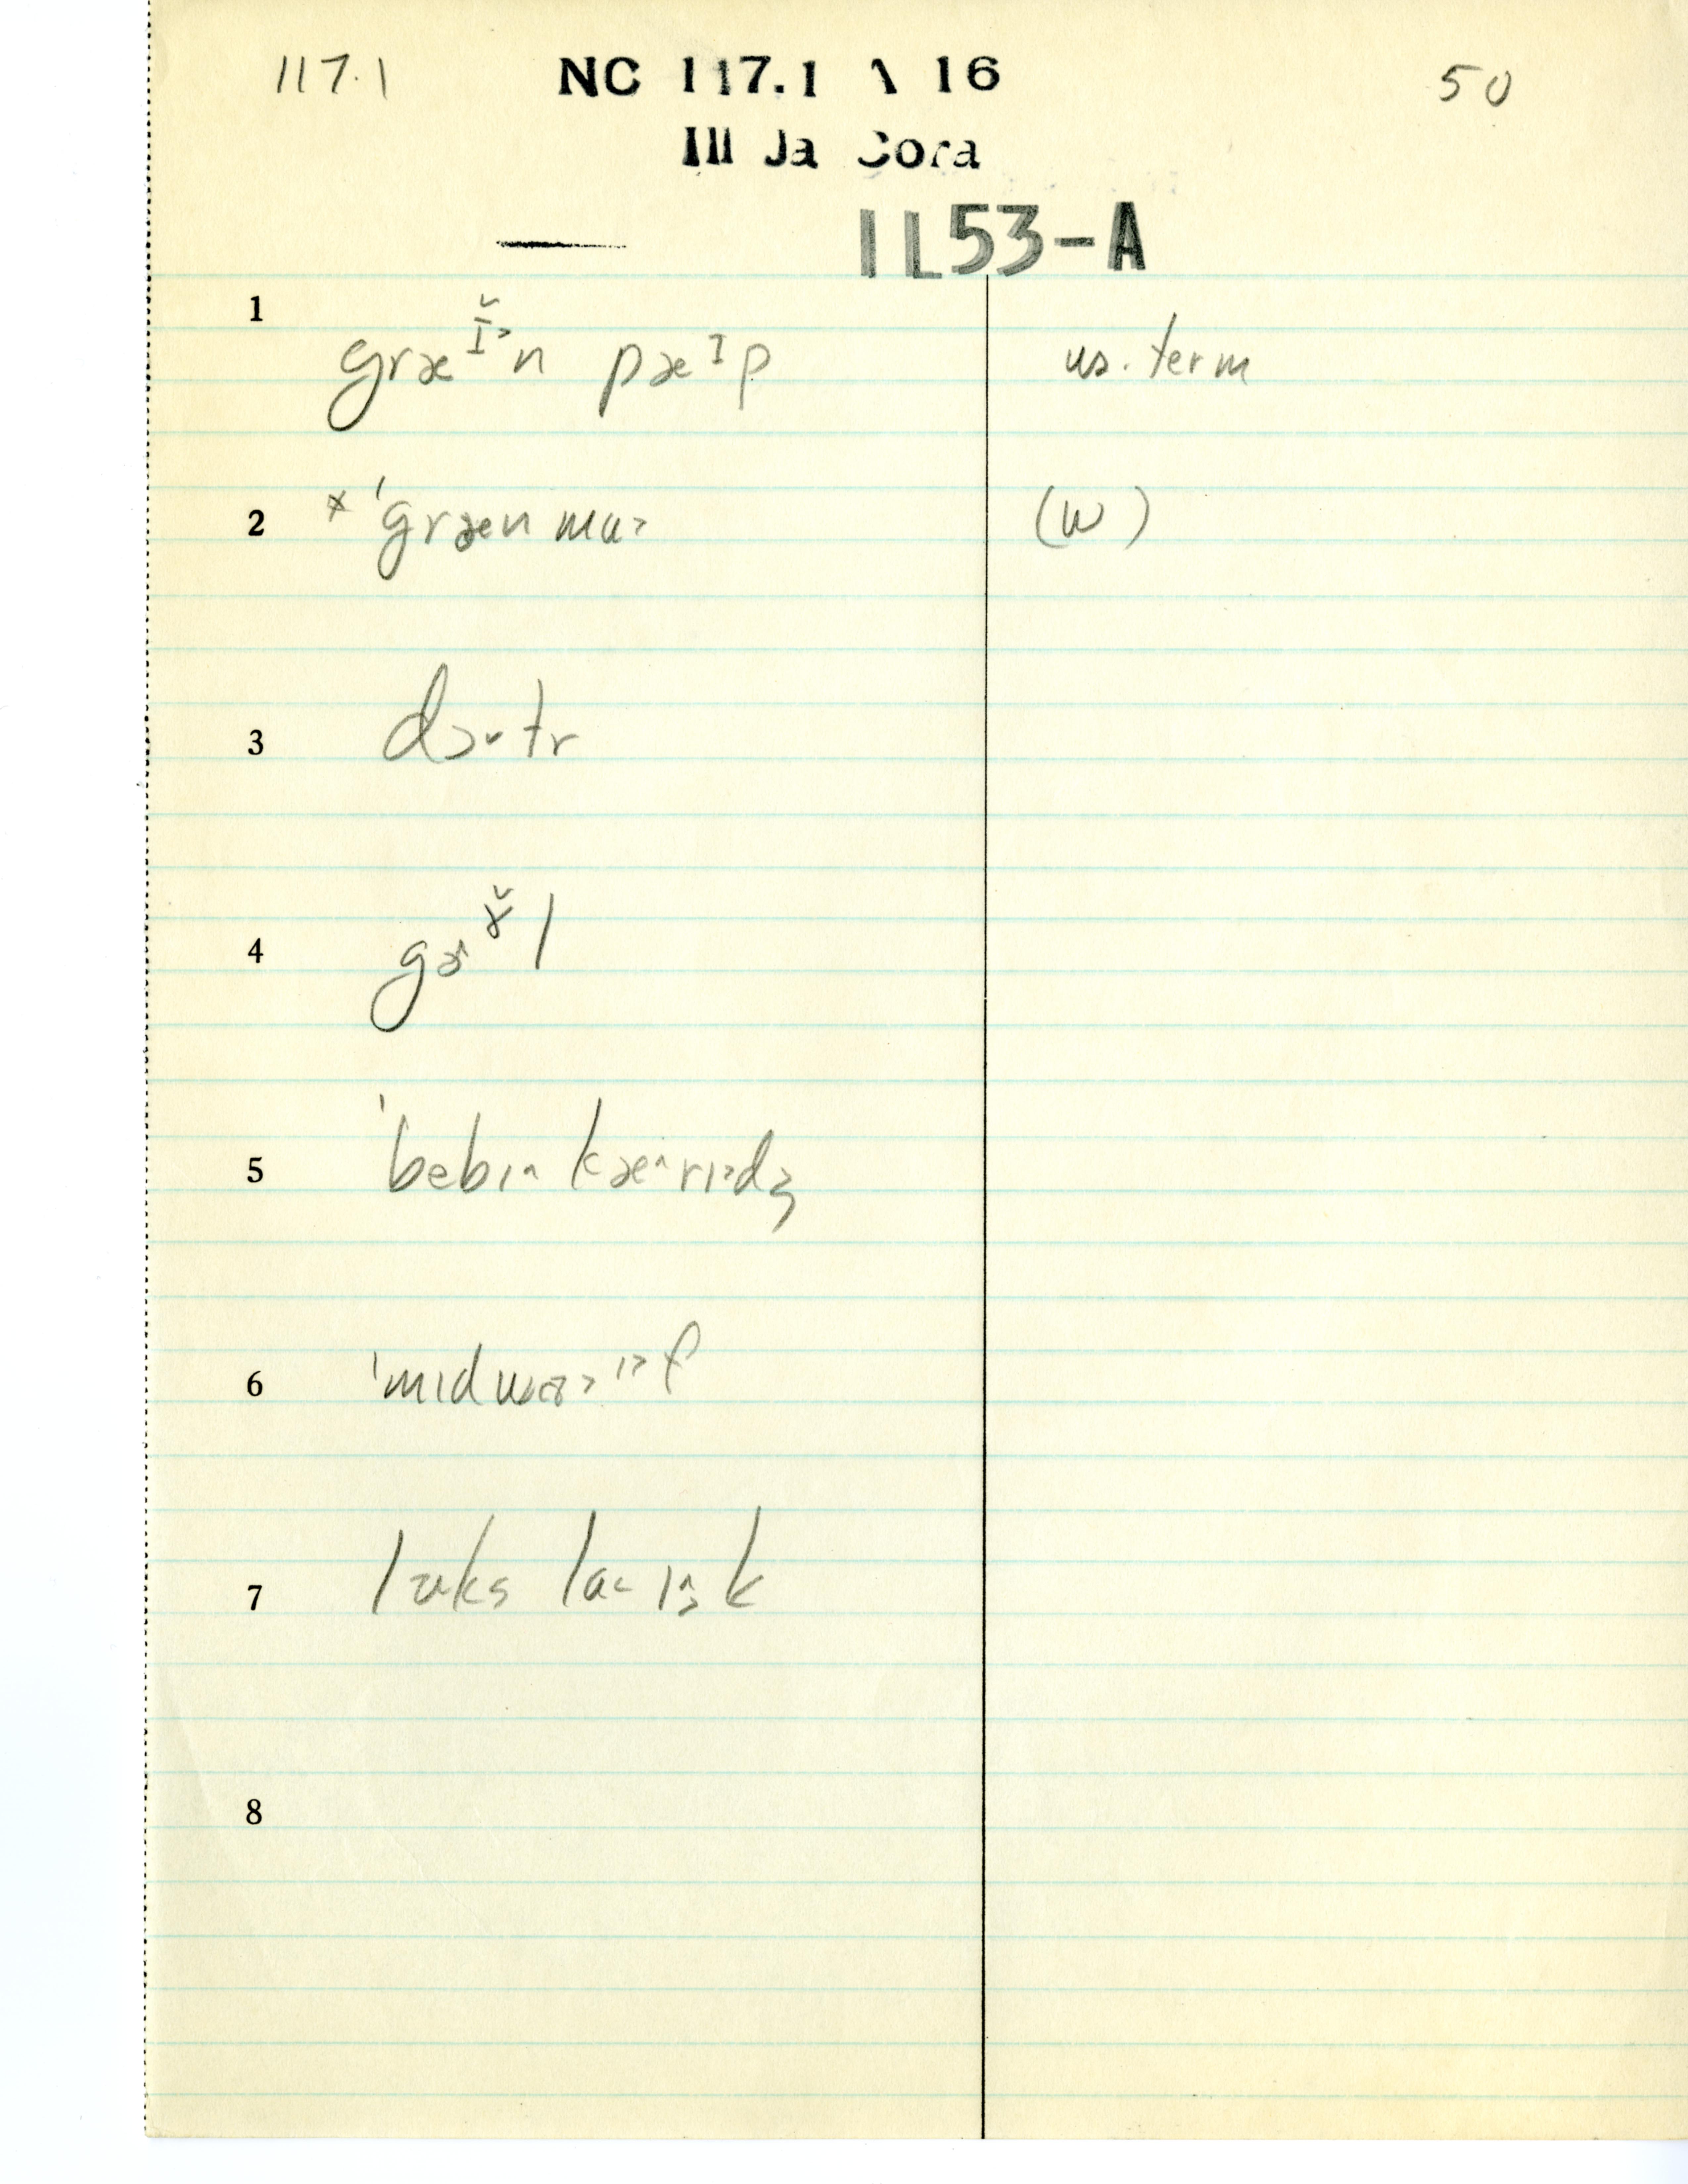 117.1 NC 117.1 \ 16 50
III Ja Cora
1L53-A
1 græɪ̆˃n pæɪp us. term
2 × ˈgrænmɑ˃ (W)
3 dɔ˅tr
4 l
5 ˈbebɪ˄ kæ˄rɪ˃dʒ
6 ˈmɪdwɑ˃ɪ˃f
7 lʊks lɑ˂ɪ˄k
8